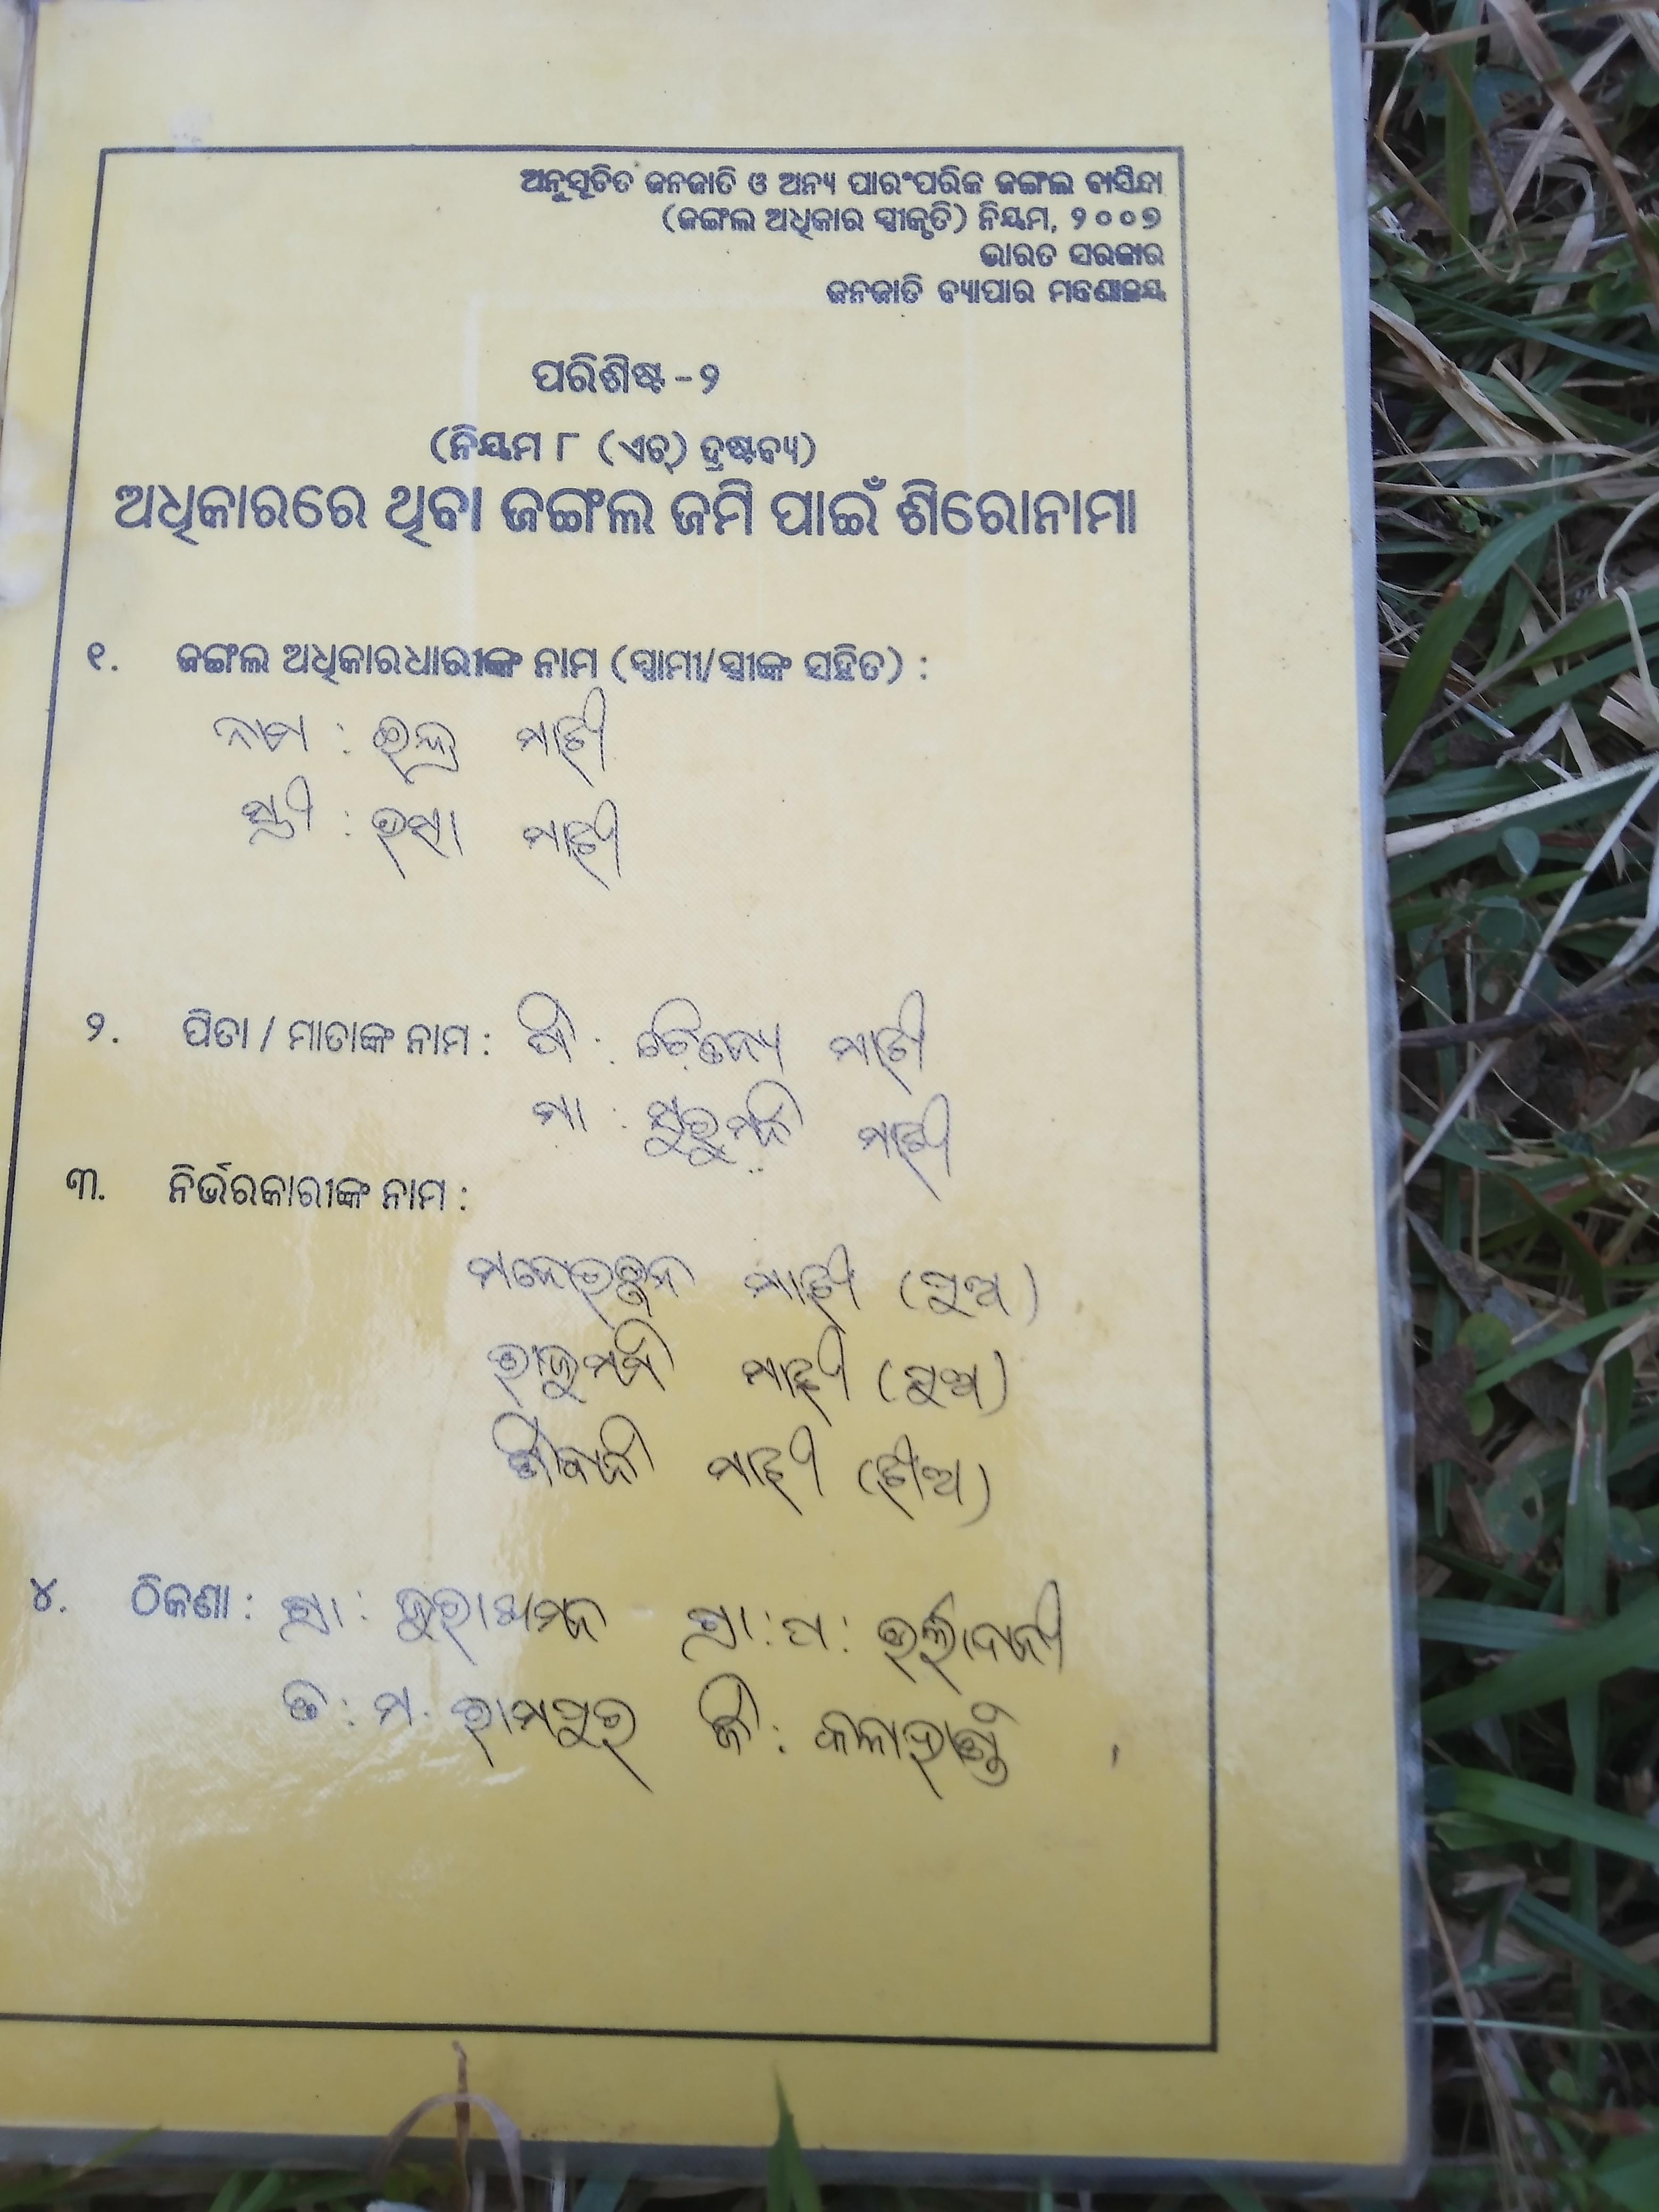 ଅନୁସୂଚିତ ଜନଜାତି ଓ ଅନ୍ୟ ପାରଂପରିକ ଜଙ୍ଗଲ ବାସିନ୍ଦା
(ଜଙ୍ଗଲ ଅଧିକାର ସ୍ୱୀକୃତି) ନିୟମ, ୨୦୦୭
ଭାରତ ସରକାର
ଜନଜାତି ବ୍ୟାପାର ମନ୍ତ୍ରଣାଳୟ
ପରିଶିଷ୍ଟ - ୨
(ନିୟମ ୮ (ଏଚ୍) ଦ୍ରଷ୍ଟବ୍ୟ)
ଅଧିକାରରେ ଥିବା ଜଙ୍ଗଲ ଜମି ପାଇଁ ଶିରୋନାମା
୧. ଜଙ୍ଗଲ ଅଧିକାରଧାରୀଙ୍କ ନାମ (ସ୍ୱାମୀ/ସ୍ତ୍ରୀଙ୍କ ସହିତ) :
ନାମ : ଇନ୍ଦ୍ର ମାଝୀ
ସ୍ତ୍ରୀ : ମାଝୀ
୨. ପିତା / ମାତାଙ୍କ ନାମ : ପି : ମାଝୀ
ମା : ମାଝୀ
୩. ନିର୍ଭରକାରୀଙ୍କ ନାମ :
ମାଝୀ (ପୁଅ)
ମାଝୀ (ପୁଅ)
ମାଝୀ (ଝିଅ)
୪. ଠିକଣା : ଗ୍ରା : ଗ୍ରା : ପ :
ତ : ମ. ରାମପୁର ଜି : କଳାହାଣ୍ଡି